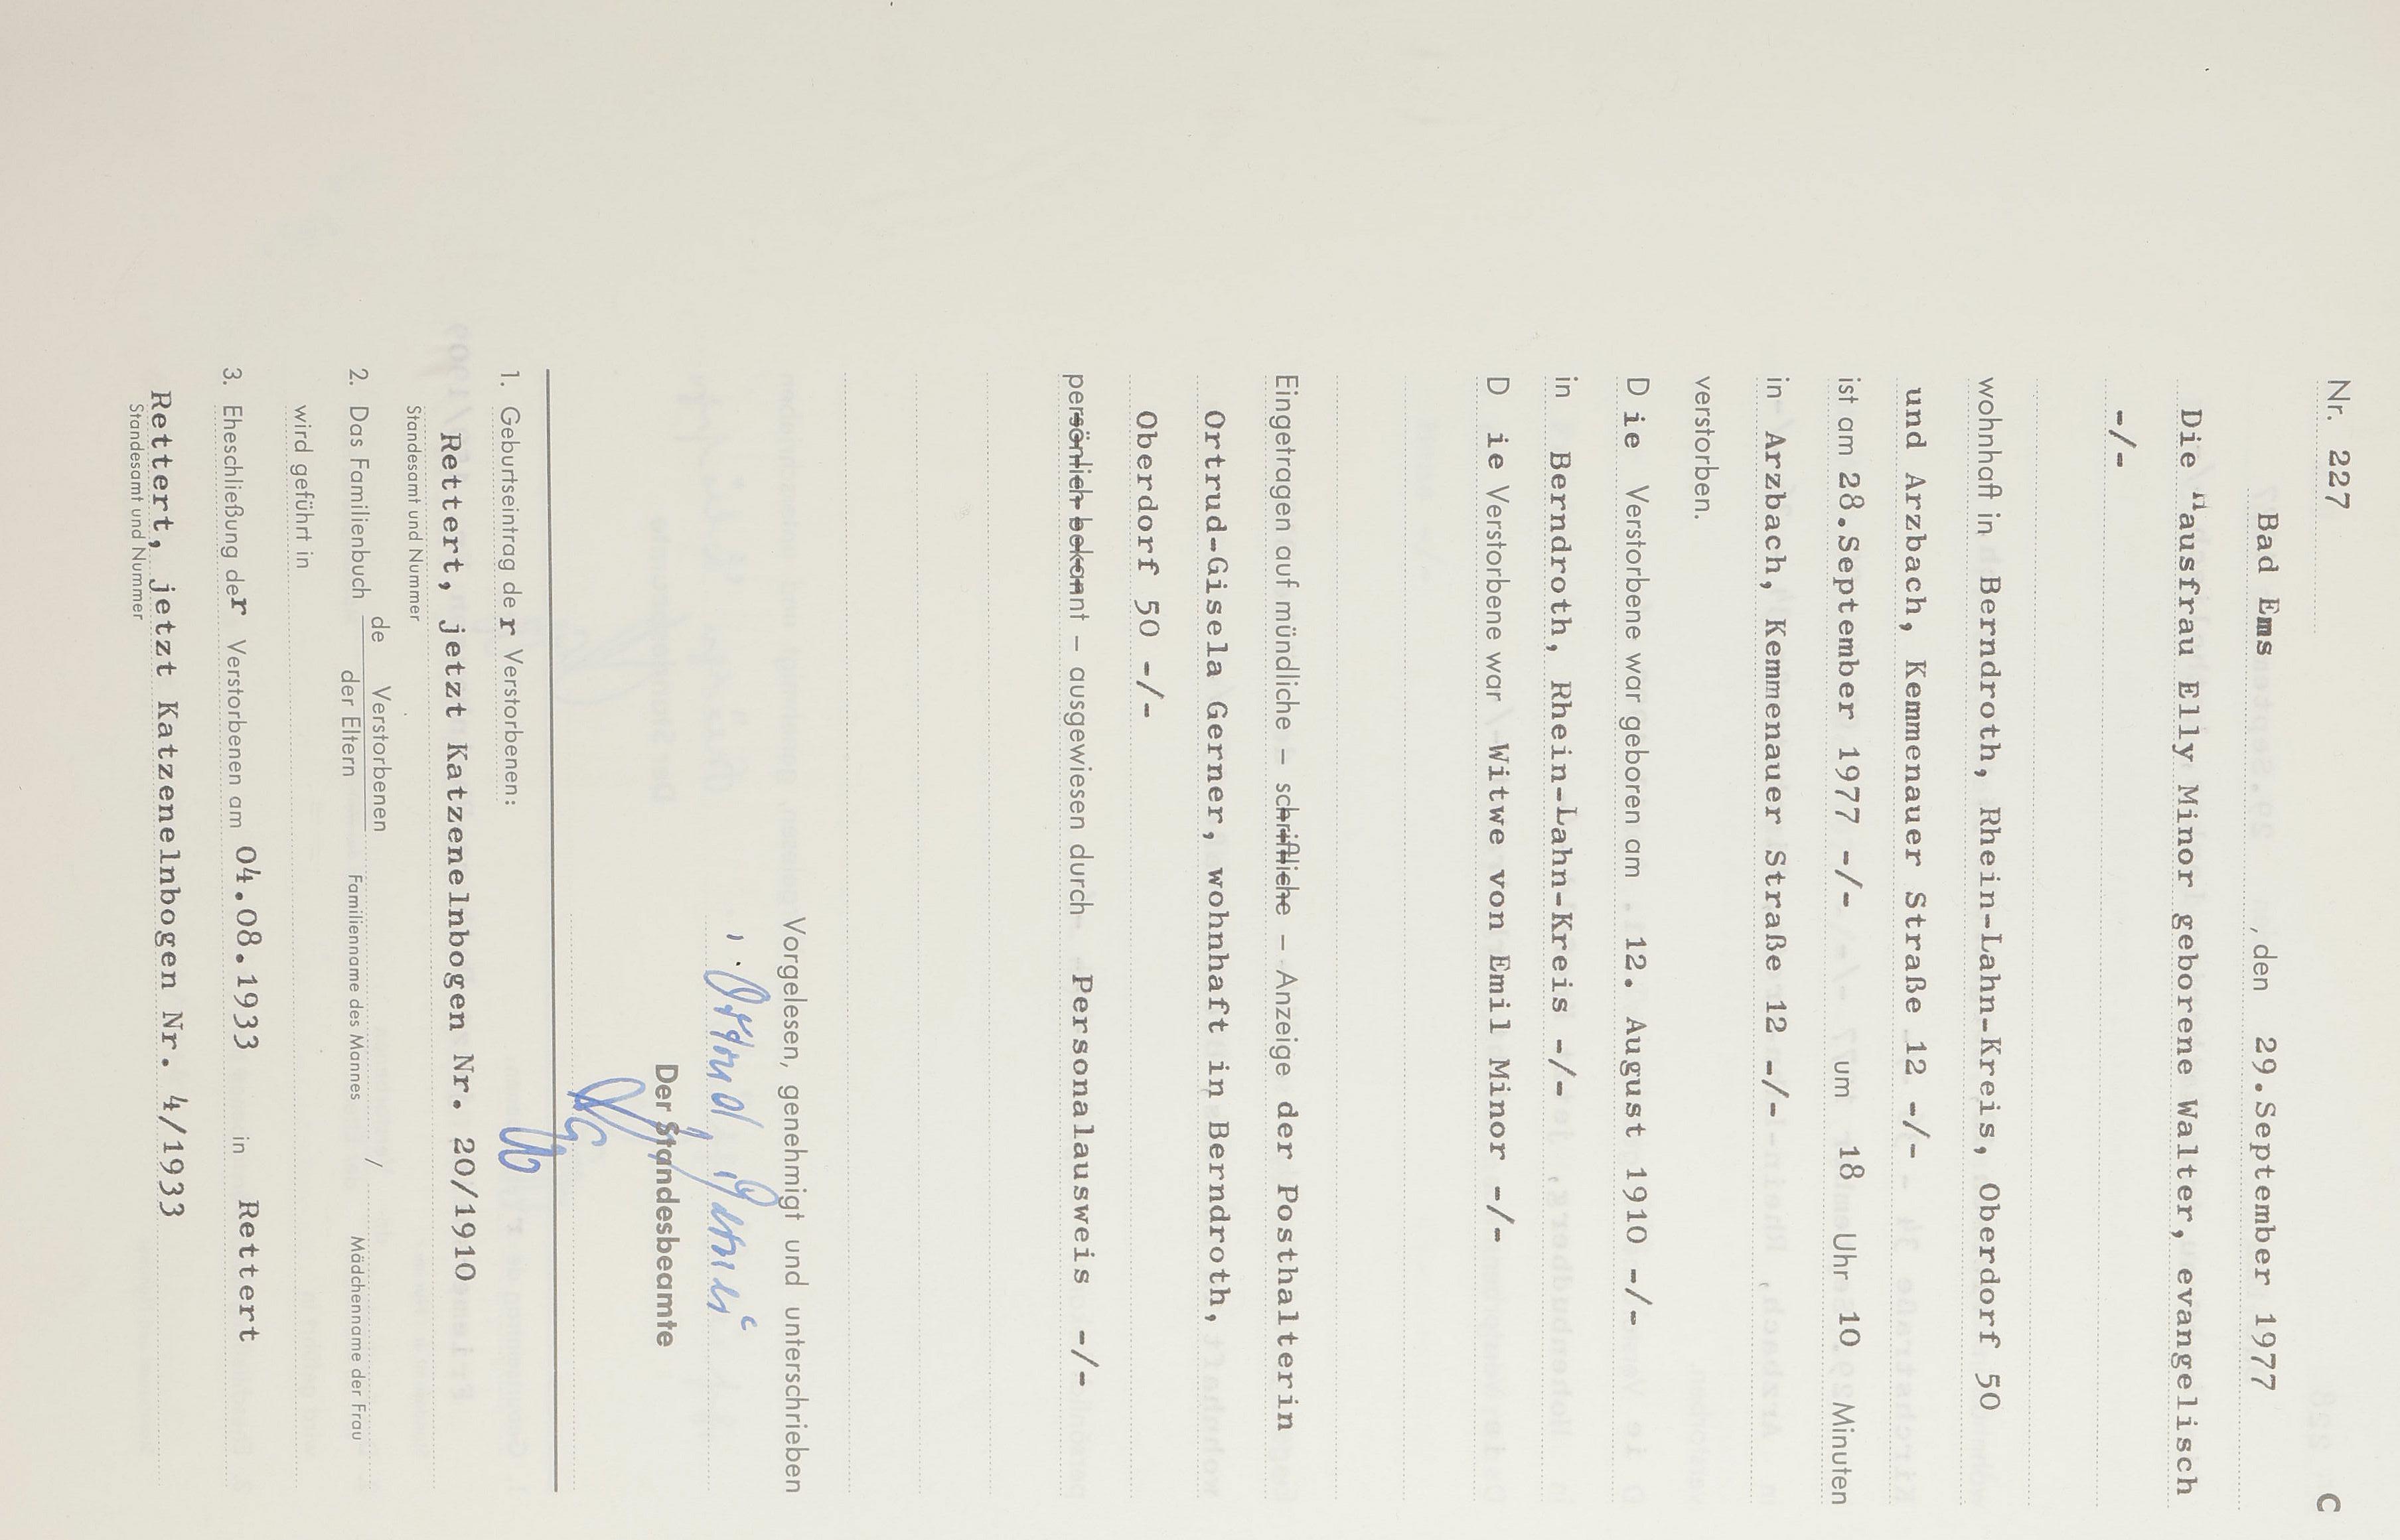 Nr. 227 C
Bad Ems , den 29.September 1977
Die Hausfrau Elly Minor geborene Walter, evangelisch
-/-
wohnhaft in Berndroth, Rhein-Lahn-Kreis, Oberdorf 50
und Arzbach, Kemmenauer Straße 12 -/-
ist am 28.September 1977 -/- um 18 Uhr 10 Minuten
in Arzbach, Kemmenauer Straße 12 -/-
verstorben.
D ie Verstorbene war geboren am 12. August 1910 -/-
in Berndroth, Rhein-Lahn-Kreis -/-
D ie Verstorbene war Witwe von Emil Minor -/-
Eingetragen auf mündliche – schriftliche – Anzeige der Posthalterin
Ortrud-Gisela Gerner, wohnhaft in Berndroth,
Oberdorf 50 -/-
persönlich bekannt – ausgewiesen durch Personalausweis -/-
Vorgelesen, genehmigt und unterschrieben
Ortrud Gerner
Der Standesbeamte
1. Geburtseintrag de r Verstorbenen:
Rettert, jetzt Katzenelnbogen Nr. 20/1910
Standesamt und Nummer
de Verstorbenen
2. Das Familienbuch der Eltern Familienname des Mannes / Mädchenname der Frau
wird geführt in
3. Eheschließung der Verstorbenen am 04.08.1933 in Rettert
Rettert, jetzt Katzenelnbogen Nr. 4/1933
Standesamt und Nummer